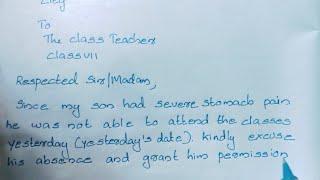 To
The Class Teacher
Class VII
Respected Sir/Madam,
Since my son had severe stomach pain
he was not able to attend the classes
yesterday (yesterday's date). Kindly excuse
his absence and grant him permission